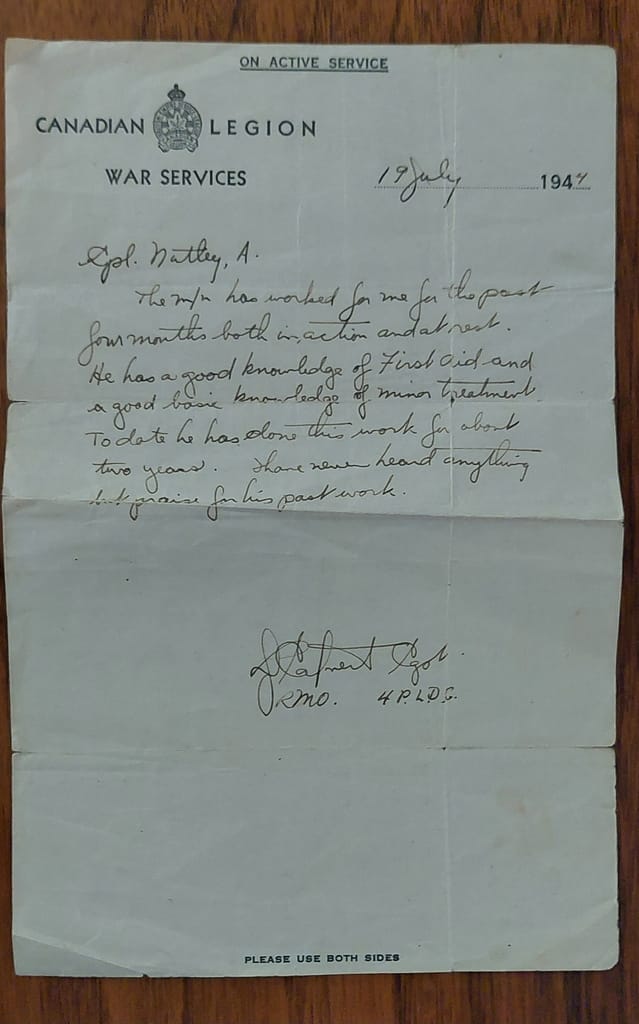 ON ACTIVE SERVICE
CANADIAN LEGION
WAR SERVICES
19 July 1944
Cpl. Nutley, A.
The m/n has worked for me for the past
four months both in action and at rest.
He has a good knowledge of First Aid and
a good basic knowledge of minor treatment.
To date he has done this work for about
two years. I have never heard anything
but praise for his past work.
Capt.
RMO. 4 P.L.D.G.
PLEASE USE BOTH SIDES